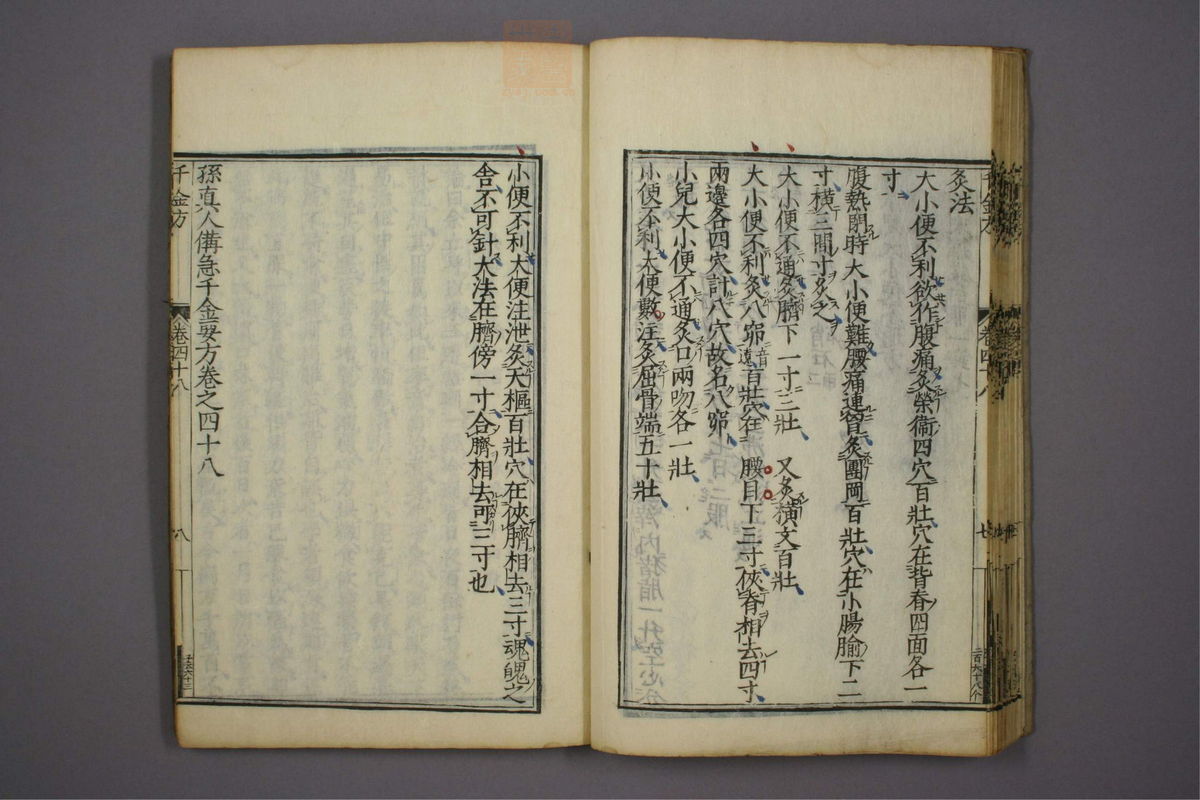 灸法
大小便不利欲作腹痛灸榮衞四穴百壯穴在背脊四面各一
寸
腹熱閉時大小便難腰痛連胷灸團岡百壯穴在小腸腧下二
寸橫三間寸灸之
大小便不通灸臍下一寸三壯 又灸橫文百壯
大小便不利灸八窌百壯穴在 腰目下三寸俠脊相去四寸
兩邊各四穴計八穴故名八窌
小兒大小便不通灸口兩吻各一壯
小便不利大便數注灸屈骨端五十壯
小便不利大便注泄灸天樞百壯穴在俠臍相去三寸魂魄之
舍不可針大法在臍傍一寸合臍相去可三寸也
孫真人備急千金要方卷之四十八
千金方 卷四十八 八